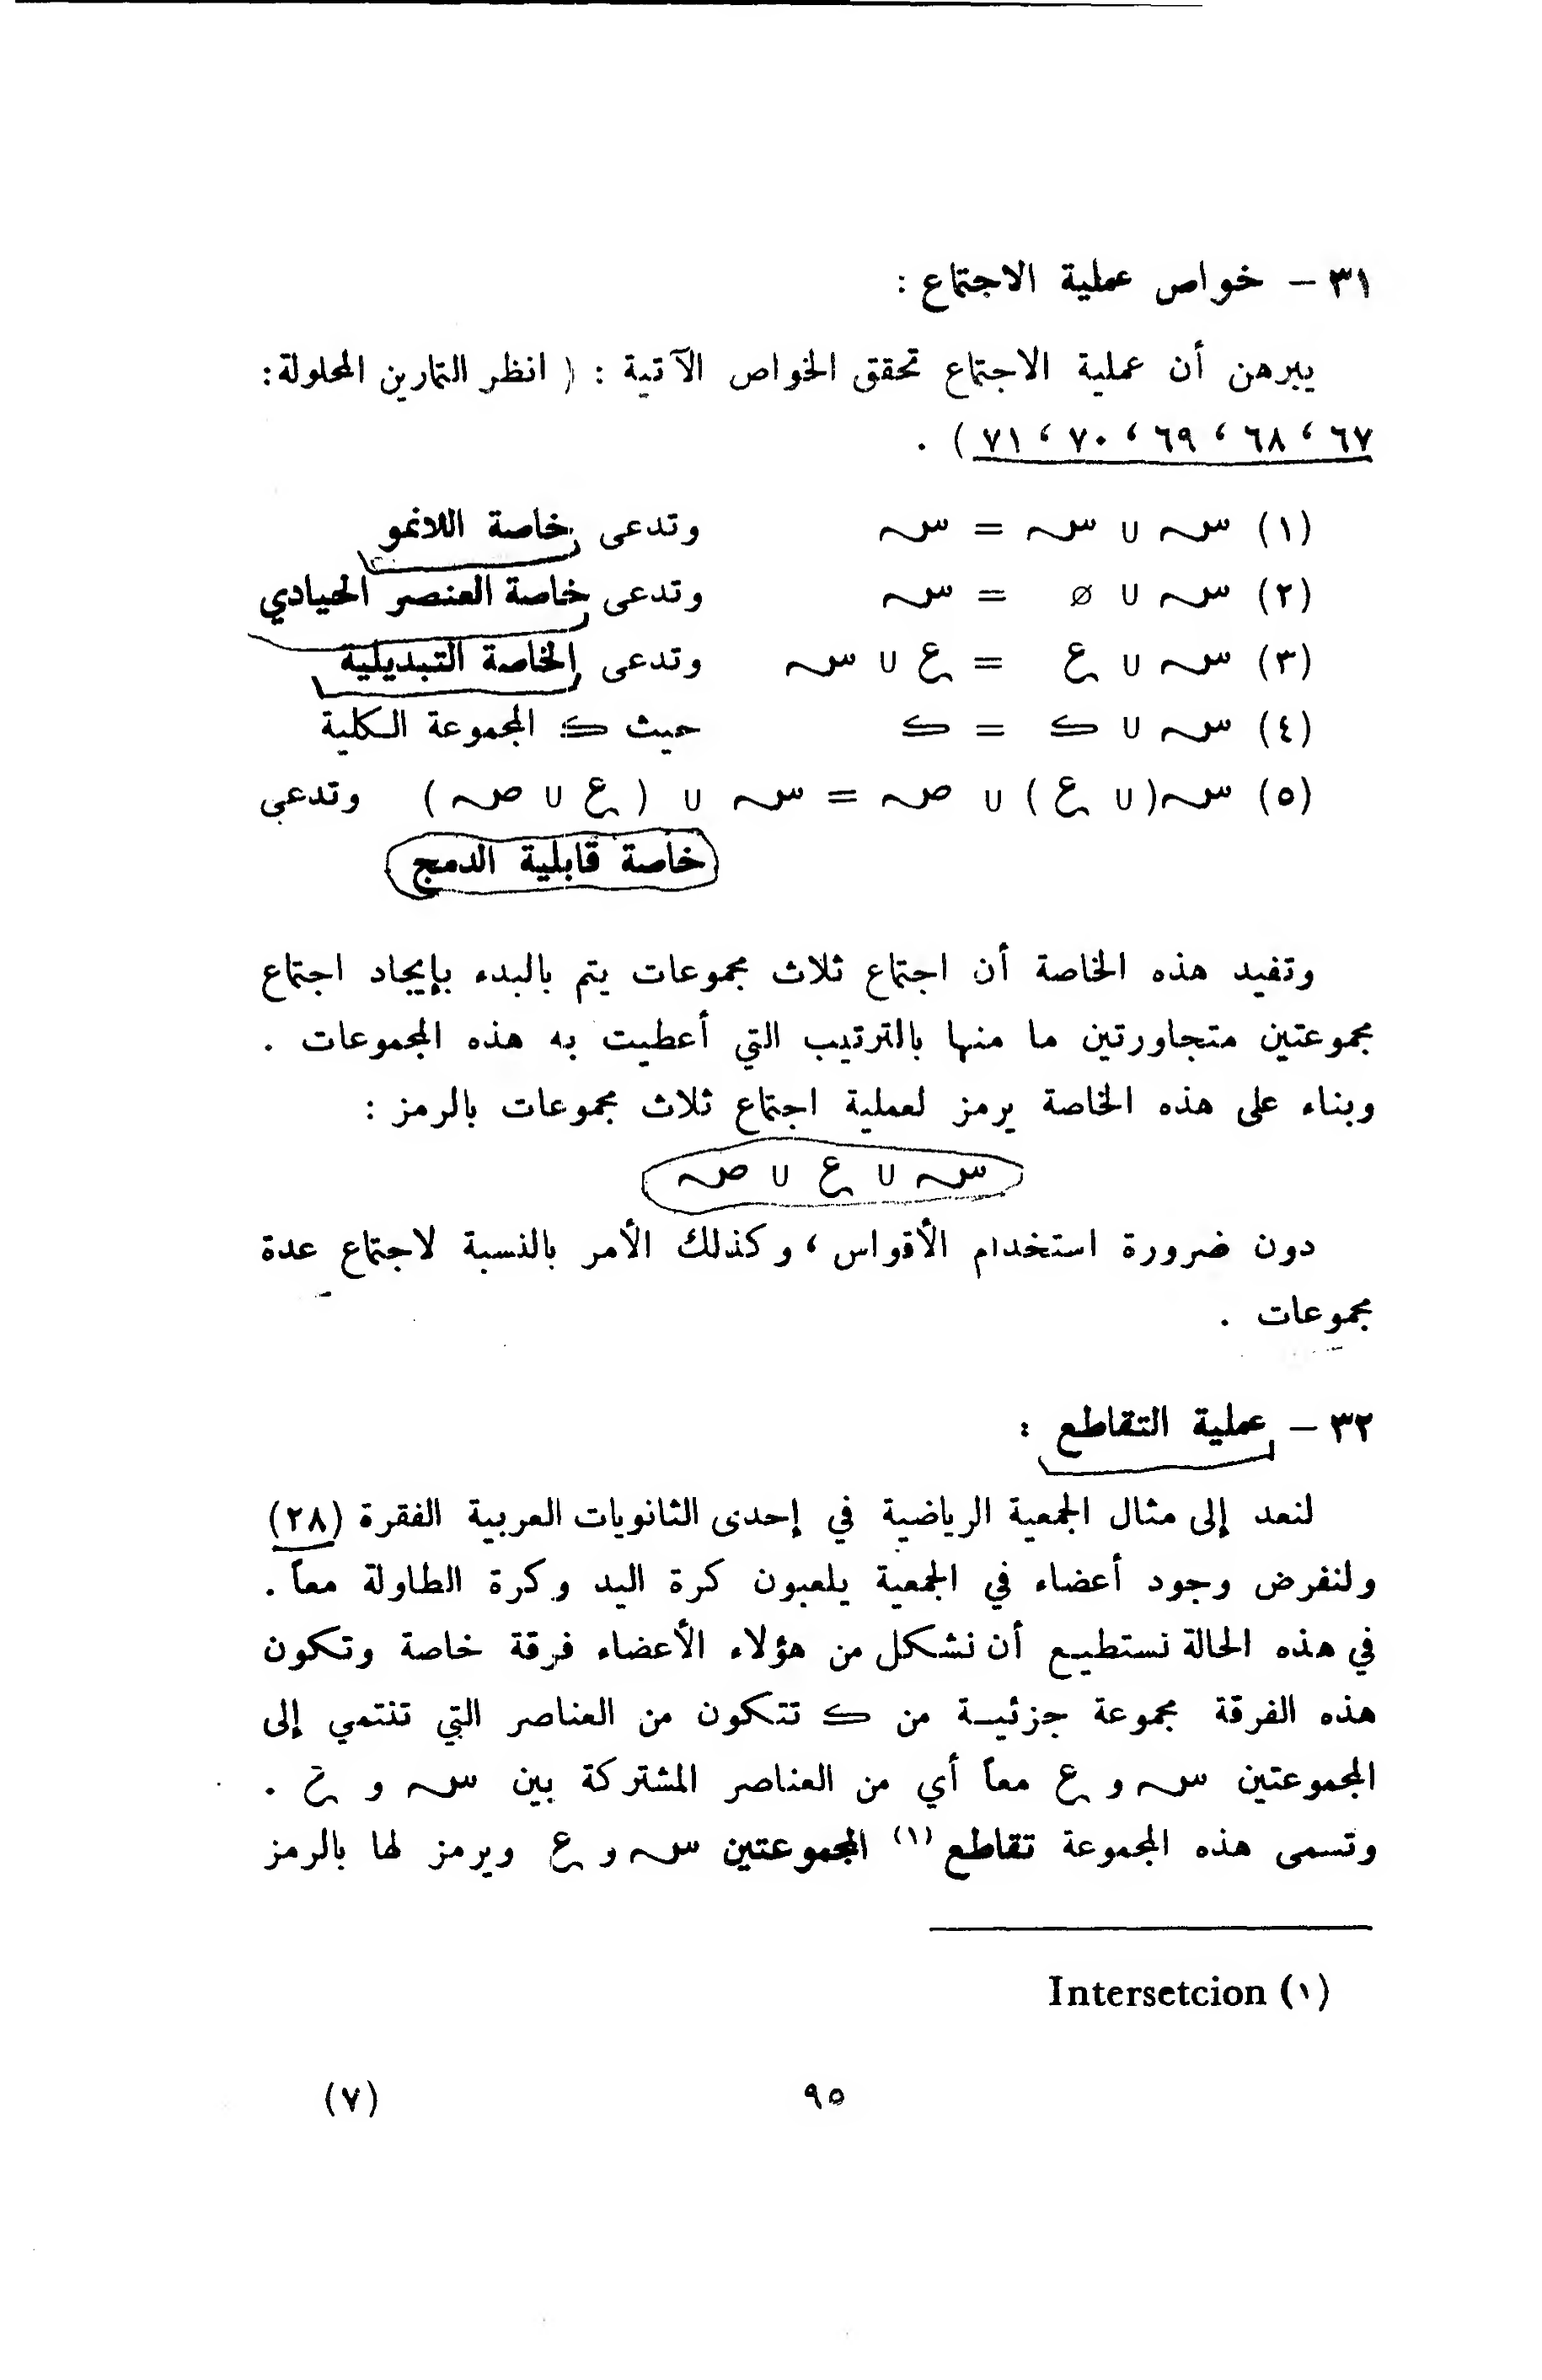 ٣١ – خواص عملية الاجتماع :
يبرهن أن عملية الاجتماع تحقق الخواص الآتية : ( انظر التمارين المحلولة:
٦٧ ، ٦٨ ، ٦٩ ، ٧٠ ، ٧١ ) .
(١) سـ ∪ سـ = سـ وتدعى خاصة اللانمو
(٢) سـ ∪ ∅ = سـ وتدعى خاصة العنصر الحيادي
(٣) سـ ∪ ع = ع ∪ سـ وتدعى الخاصة التبديلية
(٤) سـ ∪ ك = ك حيث ك المجموعة الكلية
(٥) سـ( ∪ ع ) ∪ صـ = سـ ∪ ( ع ∪ صـ ) وتدعى
خاصة قابلية الدمج
وتفيد هذه الخاصة أن اجتماع ثلاث مجموعات يتم بالبدء بإيجاد اجتماع
مجموعتين متجاورتين ما منها بالترتيب التي أعطيت به هذه المجموعات .
وبناء على هذه الخاصة يرمز لعملية اجتماع ثلاث مجموعات بالرمز :
سـ ∪ ع ∪ صـ
دون ضرورة استخدام الأقواس ، وكذلك الأمر بالنسبة لاجتماع عدة
مجموعات .
٣٢ – عملية التقاطع :
لنعد إلى مثال الجمعية الرياضية في إحدى الثانويات العربية الفقرة (٢٨)
ولنفرض وجود أعضاء في الجمعية يلعبون كرة اليد وكرة الطاولة معاً .
في هذه الحالة نستطيع أن نشكل من هؤلاء الأعضاء فرقة خاصة وتكون
هذه الفرقة مجموعة جزئية من ك تتكون من العناصر التي تنتمي إلى
المجموعتين سـ و ع معاً أي من العناصر المشتركة بين سـ و ع .
وتسمى هذه المجموعة تقاطع (١) المجموعتين سـ و ع ويرمز لها بالرمز
(١) Intersetcion
٩٥
(٧)